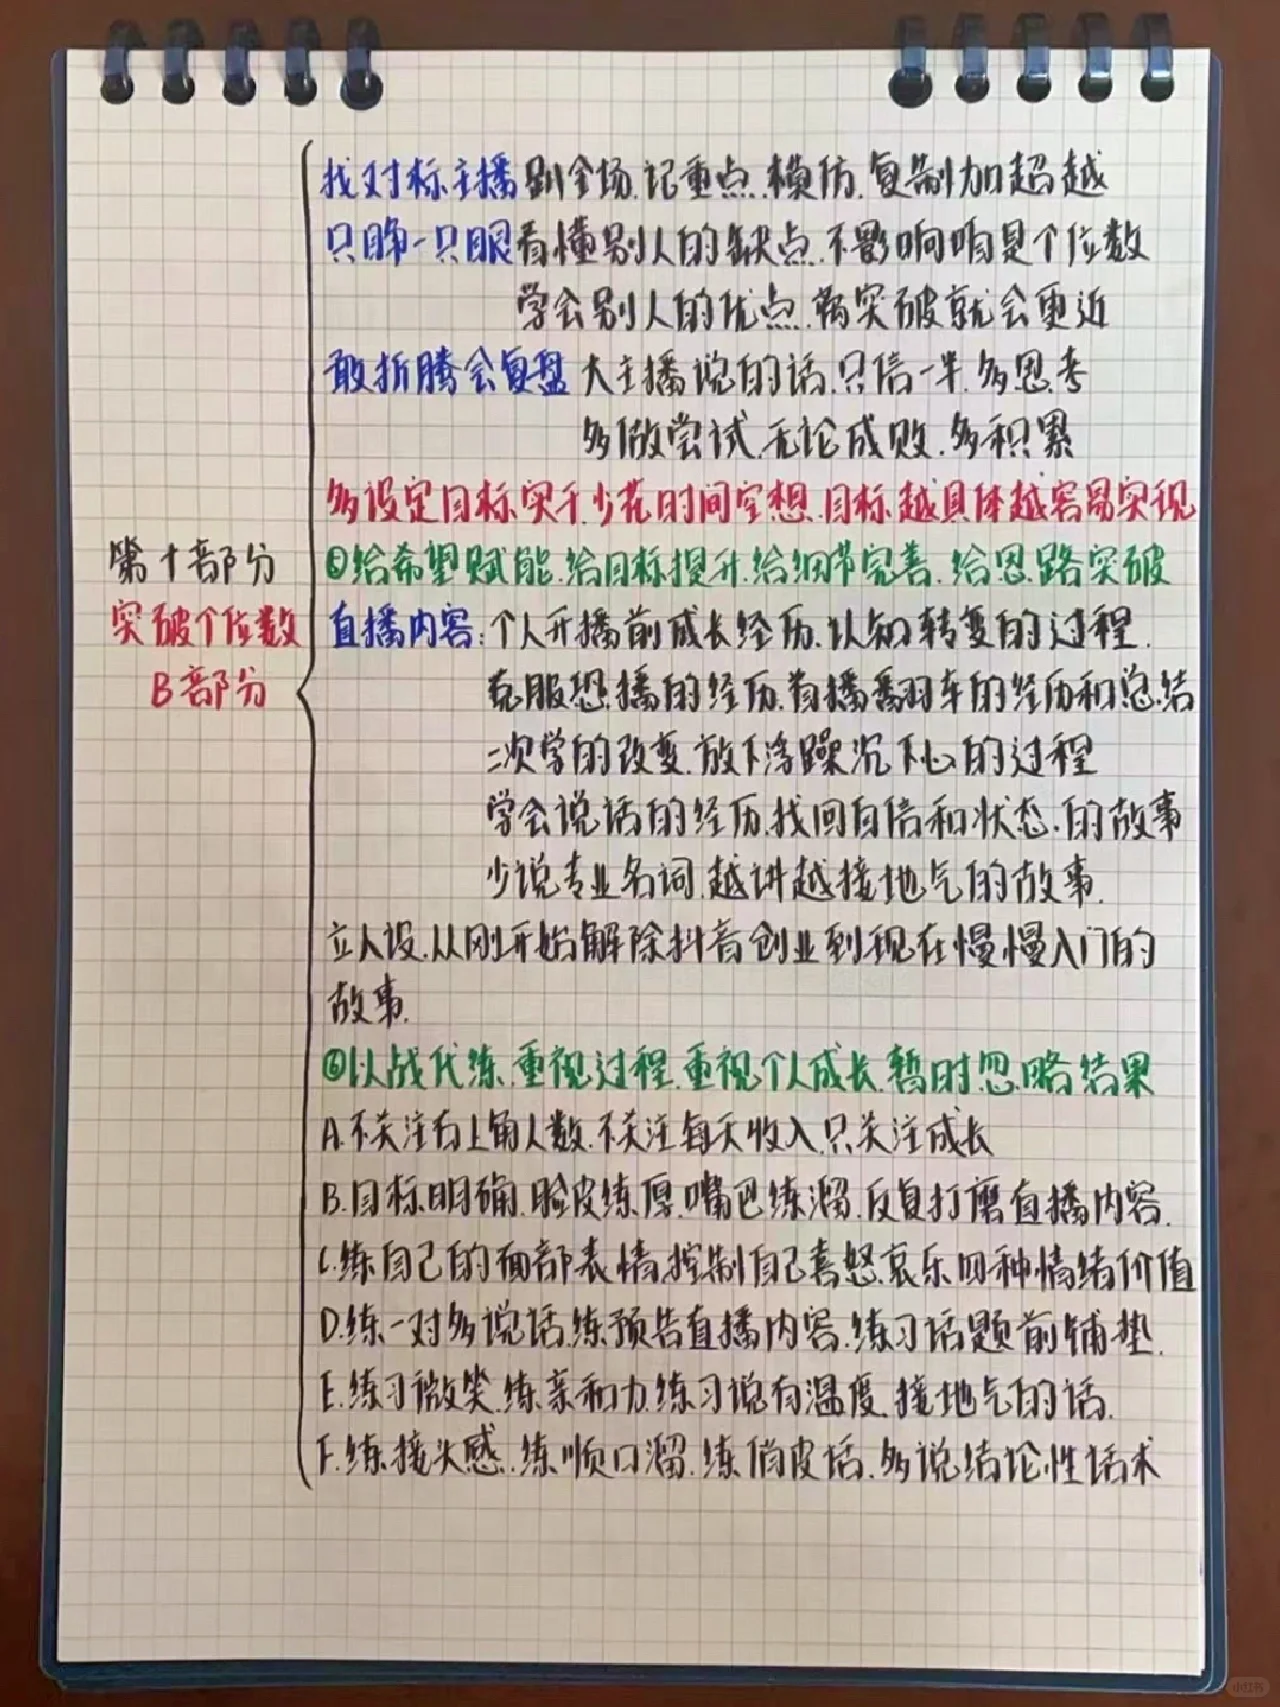 找对标主播 趴全场.记重点.模仿.复制加超越
只睁一只眼 看懂别人的缺点.不影响咱是个位数
学会别人的优点.离突破就会更近
敢折腾会复盘 大主播说的话.只信一半.多思考
多做尝试.无论成败.多积累
多设定目标.实干.少花时间空想.目标越具体越容易实现
第十部分
突破个位数
B部分
⑤给希望赋能.给目标提升.给细节完善.给思路突破
直播内容:个人开播前成长经历.认知转变的过程.
克服恐播的经历.有播翻车的经历和总结
二次学的改变.放下浮躁沉下心的过程
学会说话的经历.找回自信和状态.的故事
少说专业名词.越讲越接地气的故事.
立人设.从刚开始解除抖音创业到现在慢慢入门的
故事.
⑥以战代练.重视过程.重视个人成长.暂时忽略结果
A.不关注右上角人数.不关注每天收入.只关注成长
B.目标明确.脸皮练厚.嘴巴练溜.反复打磨直播内容.
C.练自己的面部表情.控制自己喜怒哀乐四种情绪价值
D.练一对多说话.练预告直播内容.练习话题前铺垫.
E.练习微笑.练亲和力.练习说有温度.接地气的话.
F.练接头感.练顺口溜.练俏皮话.多说结论性话术
小红书